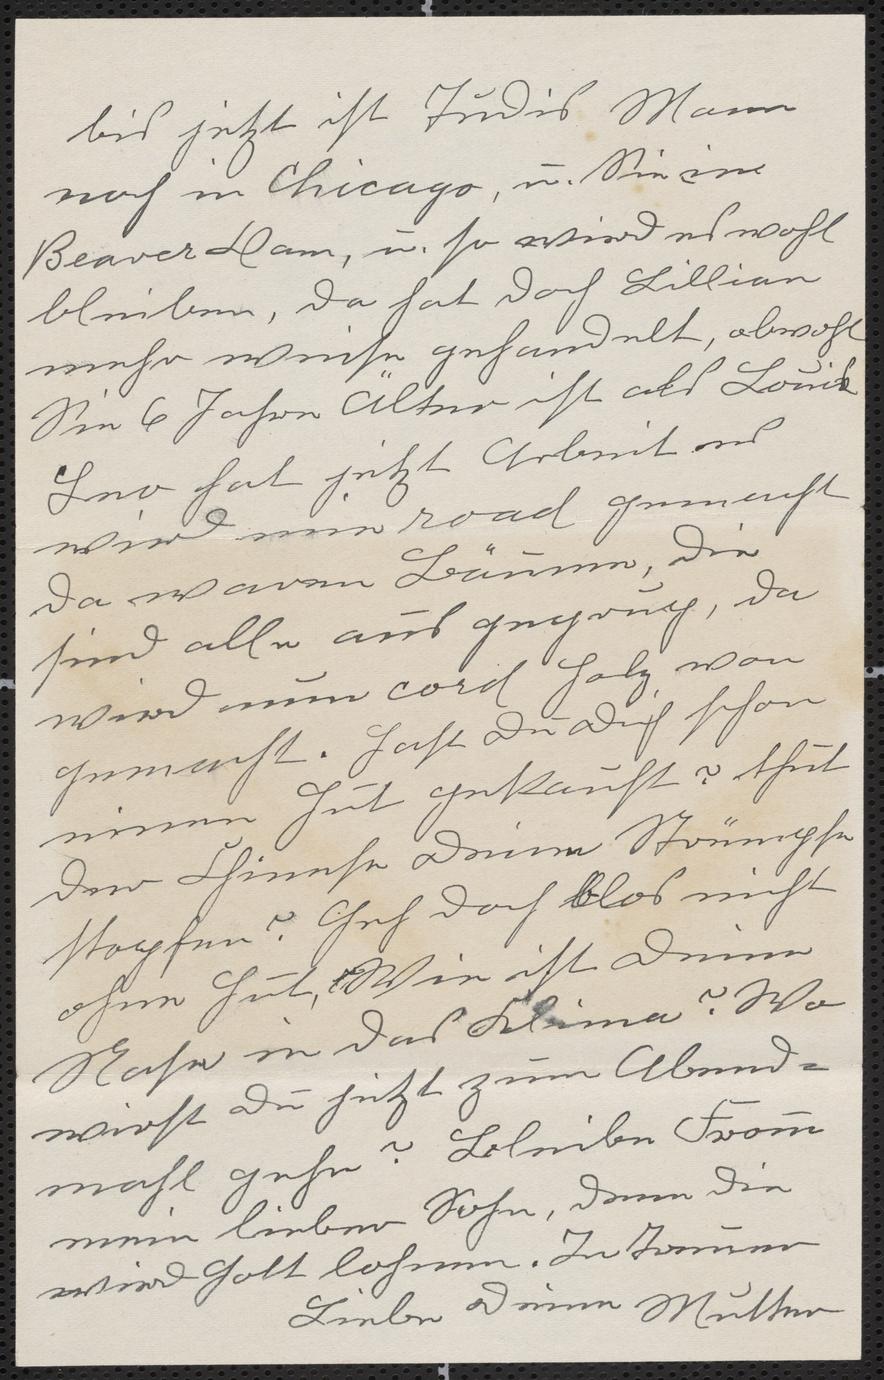 bis jetzt ist Judis Mann
noch in Chicago, u. Sie in
Beaver Dam, u. so wird es wohl
bleiben, da hat doch Lillian
mehr weise gehandelt, obwohl
Sie 6 Jahre Älter ist als Louis
Leo hat jetzt Arbeit es
wird eine road gemacht
da waren Bäume, die
sind alle aus gegrug, da
wird nun cord Holz von
gemacht. Hast Du Dich schon
einen Hut gekauft? thut
der Chinese Deine Strümpfe
stopfen? Geh doch blos nicht
ohne Hut, Wie ist Deine
Nase in das Klima? Wo
wirst Du jetzt zum Abend=
mahl gehe? Bleibe From̅
mein lieber Sohn, denn die
wird Gott lohnen. In Treuer
Liebe Deine Mutter